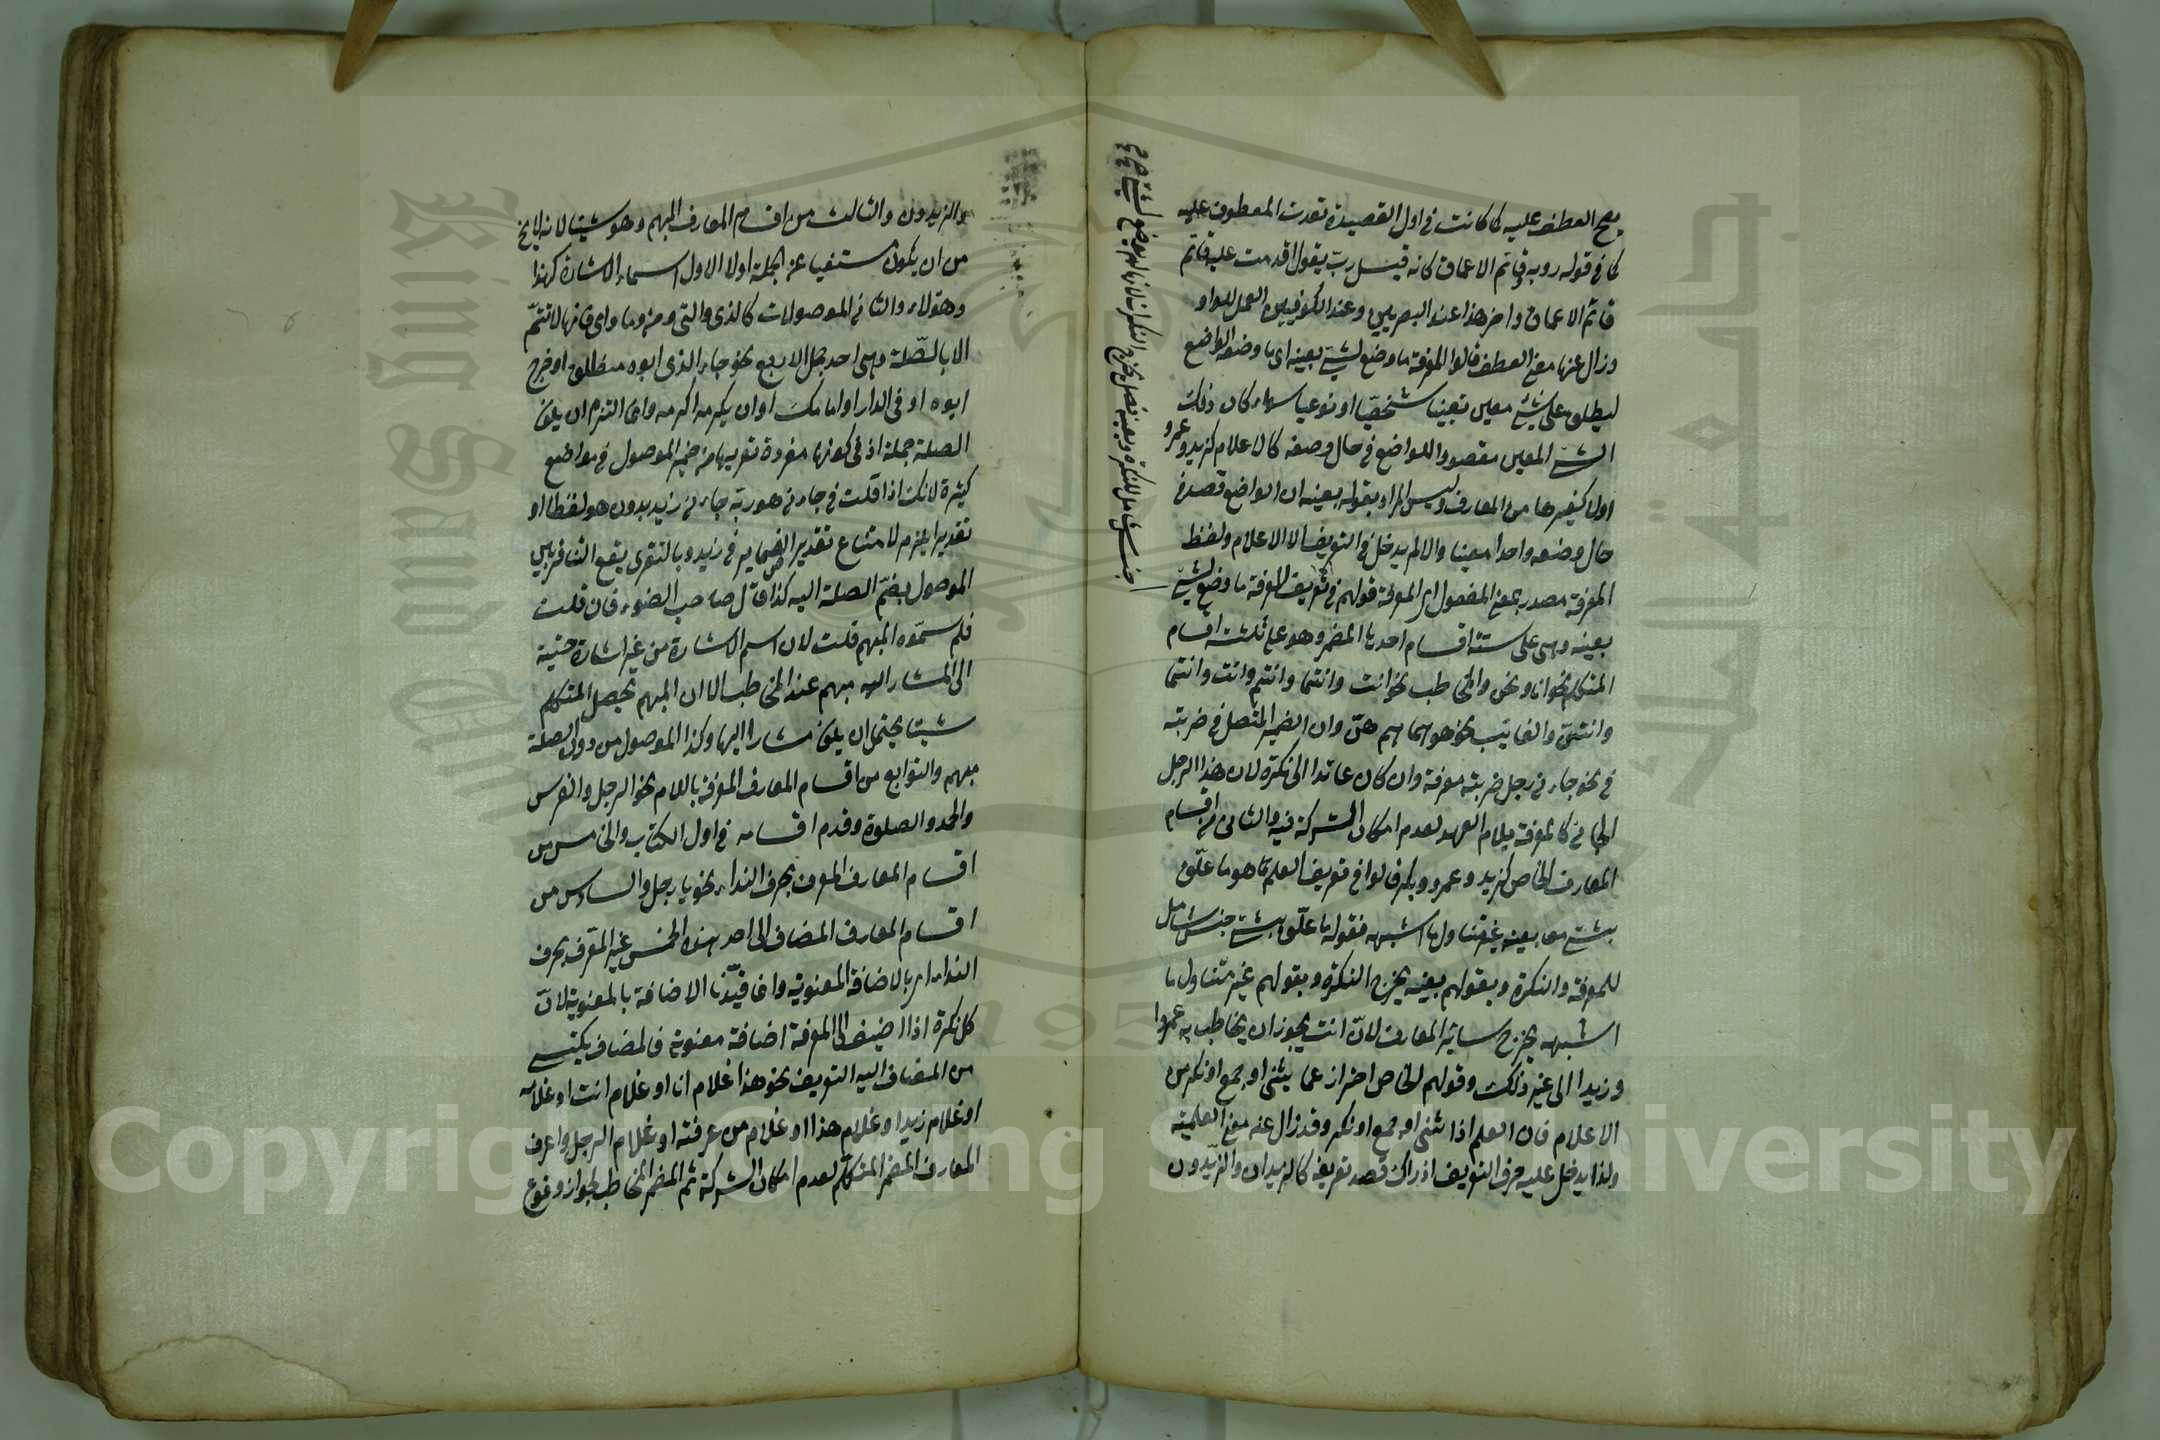 يصح العطف عليه كما كانت في اول القصيدة تقدرت المعطوف عليه
كما في قوله روبه وقاتم الاعماق كانه قيل رب يقول اقدمت عليه قاتم
قاتم الاعماق واخر هذا عند البصريين وعند الكوفيين العمل للواو
وزال عنها معنى العطف قالوا المعرفة ما وضع لشيئ بعينه اى ما وضعه الواضع
ليطلق على شيئ معين تعينا شخصيا او نوعيا سواء كان ذلك
الشيئ المعين مقصودا للواضع في حال وضعه كالاعلام كزيد وعمرو
اولا كغيرها من المعارف وليس المراد بقوله بعينه ان الواضع قصد في
حال وضعه واحدا معينا والا لم يدخل في التعريف الا الاعلام ولفظ
المعرفة مصدر بمعنى المفعول اى المعرفة قولهم في تعريف المعرفة ما وضع لشيئ
بعينه وهى على ستة اقسام احدها المضمر وهو على ثلثة اقسام
المتكلم نحو انا ونحن والمخاطب نحو انت وانتما وانتم وانت وانتما
وانتنّ والغائب نحو هو هما هم هنّ وان الضمير المتصل في ضربته
في نحو جاءني رجل ضربته معرفة وان كان عائدا الى نكرة لان هذا الرجل
الجائي كالمعرفة بلام العهد لعدم امكان الشركة فيه والثانى من اقسام
المعارف الخاص كزيد وعمرو وبكر قالوا في تعريف العلم ما هو ما علّق
بشيئ بعينه غير متناول ما اشبهه فقوله ما علّق بشيئ جنس شامل
للمعرفة والنكرة وبقولهم بعينه يخرج النكرة وبقولهم غير متناول ما
اشبهه يخرج سائر المعارف لانّ انت يجوز ان يخاطب به عمروا
وزيدا الى غير ذلك وقولهم الخاص احتراز عما يثنى او يجمع او نكر من
الاعلام فان العلم اذا ثنى او جمع او نكر وقد زال عنه معنى العلمية
ولذا يدخل عليه حرف التعريف اذ ذاك قصد تعريفه كالزيدان والزيدون
جنس شامل للنكرة وبعينه فصل يخرج النكرات لانها لم يوضع لشيئ
والزيدون والثالث من اقسام المعارف المبهم وهو شيئان لانه لا يخ
من ان يكون مستغنيا عن الجملة اولا الاول اسماء الاشارة كهذا
وهؤلاء والثاني الموصولات كالذى والتى ومن وما واى فانها لا تتم
الا بالصّلة وهى احد جمل الاربع نحو جاء الذى ابوه منطلق او خرج
ابوه او في الدار او امامك او ان يكرمه اكرمه وانما التزم ان يكون
الصلة جملة اذ في كونها مفردة تعريها من ضمير الموصول في مواضع
كثيرة لانك اذا قلت في جاءني هو ربه جاءني زيد بدون هو لفظا او
تقديرا يلزم لامتناع تقدير الضماير في زيد وبالتعرى يقع التنافر بين
الموصول بضمّ الصلة اليه كذا قال صاحب الضوء فان قلت
فلم سمّوه المبهم قلت لان اسم الاشارة من غير اشارة حسّية
الى المشار اليه مبهم عند المخاطب الا ان المبهم يحصل المتكلم
شيئا يحتمل ان يكون مشارا اليها وكذا الموصول من دون الصلة
مبهم والتوابع من اقسام المعارف المعرفة باللام نحو الرجل والفرس
والحمد والصلوة وقدم اقسامه في اول الكتاب والخامس من
اقسام المعارف المعرف بحرف النداء نحو يا رجل والسادس من
اقسام المعارف المضاف الى احد هذه الخمس غير المعرف بحرف
النداء اى بالاضافة المعنوية وانما قيّدنا الاضافة بالمعنوية لانّ
كل نكرة اذا اضيف الى المعرفة اضافة معنوية فالمضاف يكتسى
من المضاف اليه التعريف نحو هذا غلام انا او غلام انت او غلامه
او غلام زيد او غلام هذا او غلام من عرفته او غلام الرجل واعرف
المعارف المضمر المتكلم لعدم امكان الشركة ثم المضمر المخاطب لجواز وقوع
King Saud University
جامعة الملك سعود
1957
Copyright © King Saud University